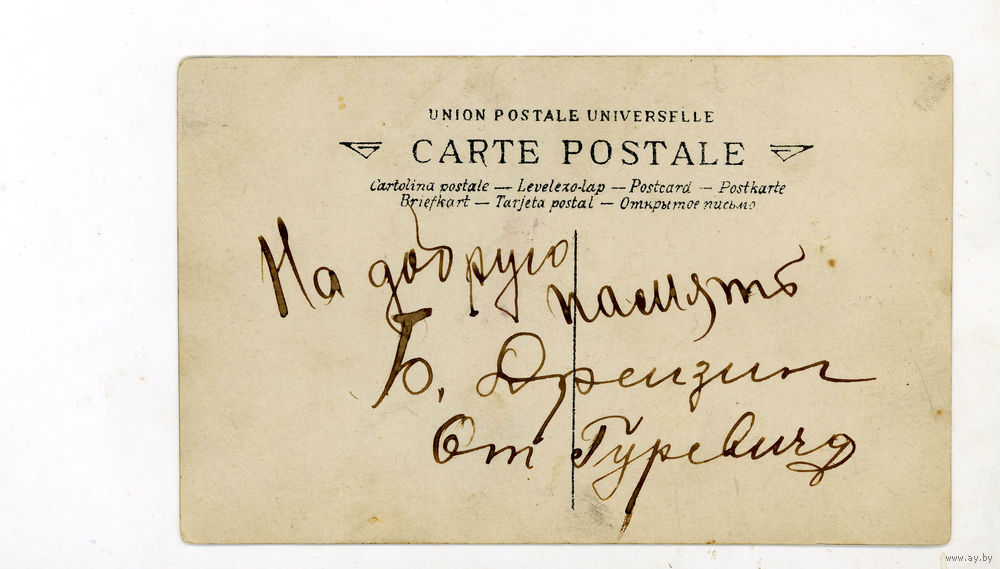 UNION POSTALE UNIVERSELLE
CARTE POSTALE
Cartolina postale — Levelezo-lap — Postcard — Postkarte
Briefkart — Tarjeta postal — Открытое письмо
На добрую
память
Б. Дрейзин
От Гуревича
www.ay.by